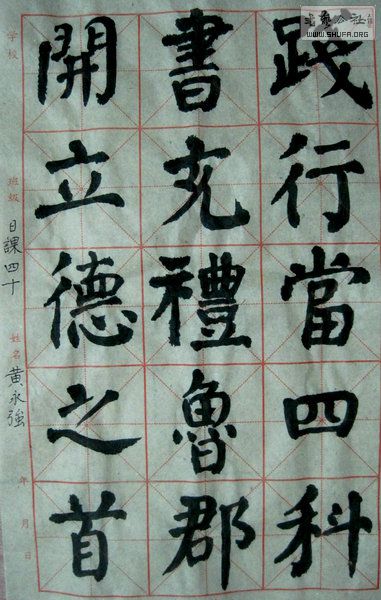 踐行當四科
書充禮魯郡
開立德之首
学校
班級
日課四十
姓名
黄永強
年 月 日
WWW.SHUFA.ORG